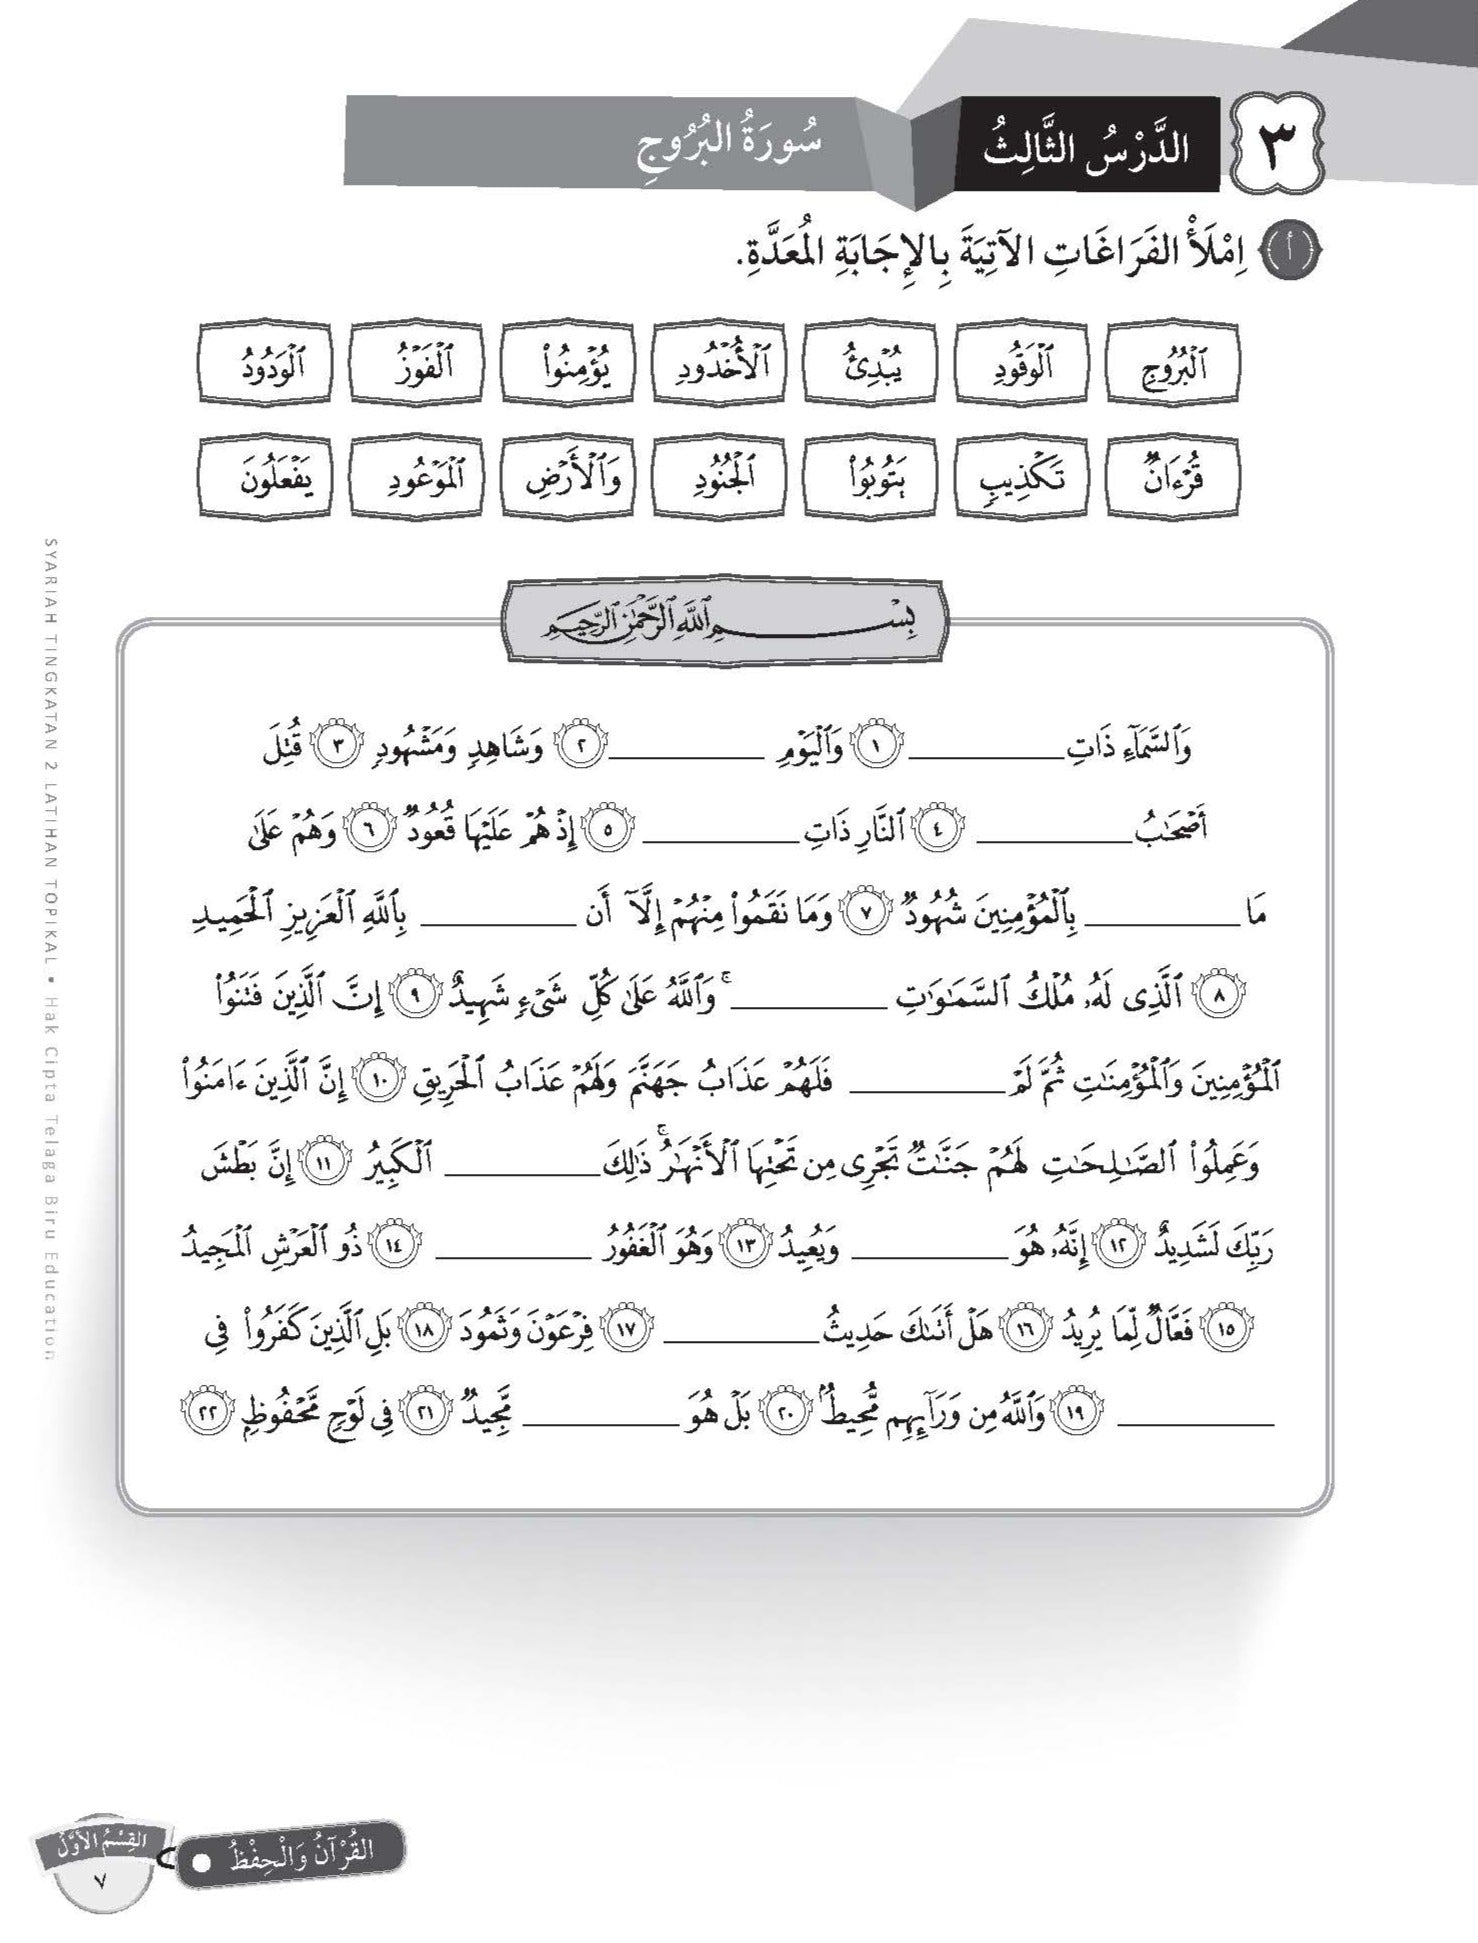 ٣ الدَّرْسُ الثَّالِثُ سُورَةُ البُرُوجِ
أ اِمْلَأْ الفَرَاغَاتِ الآتِيَةَ بِالإِجَابَةِ المُعَدَّةِ.
ٱلْبُرُوجِ ٱلْوَقُودِ يُبْدِئُ ٱلْأُخْدُودِ يُؤْمِنُوا۟ ٱلْفَوْزُ ٱلْوَدُودُ
قُرْءَانٌ تَكْذِيبٍ يَتُوبُوا۟ ٱلْجُنُودِ وَٱلْأَرْضِ ٱلْمَوْعُودِ يَفْعَلُونَ
بِسْمِ ٱللَّهِ ٱلرَّحْمَٰنِ ٱلرَّحِيمِ
وَٱلسَّمَآءِ ذَاتِ __________ ١ وَٱلْيَوْمِ __________ ٢ وَشَاهِدٍ وَمَشْهُودٍ ٣ قُتِلَ
أَصْحَٰبُ __________ ٤ ٱلنَّارِ ذَاتِ __________ ٥ إِذْ هُمْ عَلَيْهَا قُعُودٌ ٦ وَهُمْ عَلَىٰ
مَا __________ بِٱلْمُؤْمِنِينَ شُهُودٌ ٧ وَمَا نَقَمُوا۟ مِنْهُمْ إِلَّآ أَن __________ بِٱللَّهِ ٱلْعَزِيزِ ٱلْحَمِيدِ
٨ ٱلَّذِى لَهُۥ مُلْكُ ٱلسَّمَٰوَٰتِ __________ ۚ وَٱللَّهُ عَلَىٰ كُلِّ شَىْءٍ شَهِيدٌ ٩ إِنَّ ٱلَّذِينَ فَتَنُوا۟
ٱلْمُؤْمِنِينَ وَٱلْمُؤْمِنَٰتِ ثُمَّ لَمْ __________ فَلَهُمْ عَذَابُ جَهَنَّمَ وَلَهُمْ عَذَابُ ٱلْحَرِيقِ ١٠ إِنَّ ٱلَّذِينَ ءَامَنُوا۟
وَعَمِلُوا۟ ٱلصَّٰلِحَٰتِ لَهُمْ جَنَّٰتٌ تَجْرِى مِن تَحْتِهَا ٱلْأَنْهَٰرُ ۚ ذَٰلِكَ __________ __________ ٱلْكَبِيرُ ١١ إِنَّ بَطْشَ
رَبِّكَ لَشَدِيدٌ ١٢ إِنَّهُۥ هُوَ __________ وَيُعِيدُ ١٣ وَهُوَ ٱلْغَفُورُ __________ ١٤ ذُو ٱلْعَرْشِ ٱلْمَجِيدُ
١٥ فَعَّالٌ لِّمَا يُرِيدُ ١٦ هَلْ أَتَىٰكَ حَدِيثُ __________ ١٧ فِرْعَوْنَ وَثَمُودَ ١٨ بَلِ ٱلَّذِينَ كَفَرُوا۟ فِى
__________ ١٩ وَٱللَّهُ مِن وَرَآئِهِم مُّحِيطٌۢ ٢٠ بَلْ هُوَ __________ مَّجِيدٌ ٢١ فِى لَوْحٍ مَّحْفُوظٍۭ ٢٢
SYARIAH TINGKATAN 2 LATIHAN TOPIKAL • Hak Cipta Telaga Biru Education
القُرْآنُ وَالْحِفْظُ
القِسْمُ الأَوَّلُ
٧